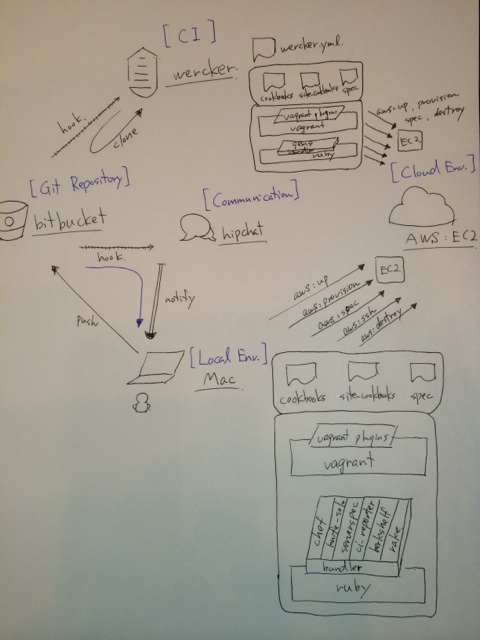 [CI]
wercker.
wercker.yml.
cookbooks
site-cookbooks
spec
vagrant plugins
vagrant
gems
ruby
aws:up, provision
spec, destroy
EC2
hook.
clone
[Git Repository]
bitbucket
[Communication]
hipchat
[Cloud Env.]
AWS:EC2
hook.
notify
push
[Local Env.]
Mac
aws:up
aws:provision
aws:spec
aws:ssh
aws:destroy
EC2
cookbooks
site-cookbooks
spec
vagrant plugins
vagrant
chef
knife-solo
serverspec
ci-reporter
berkshelf
rake
bundler
ruby